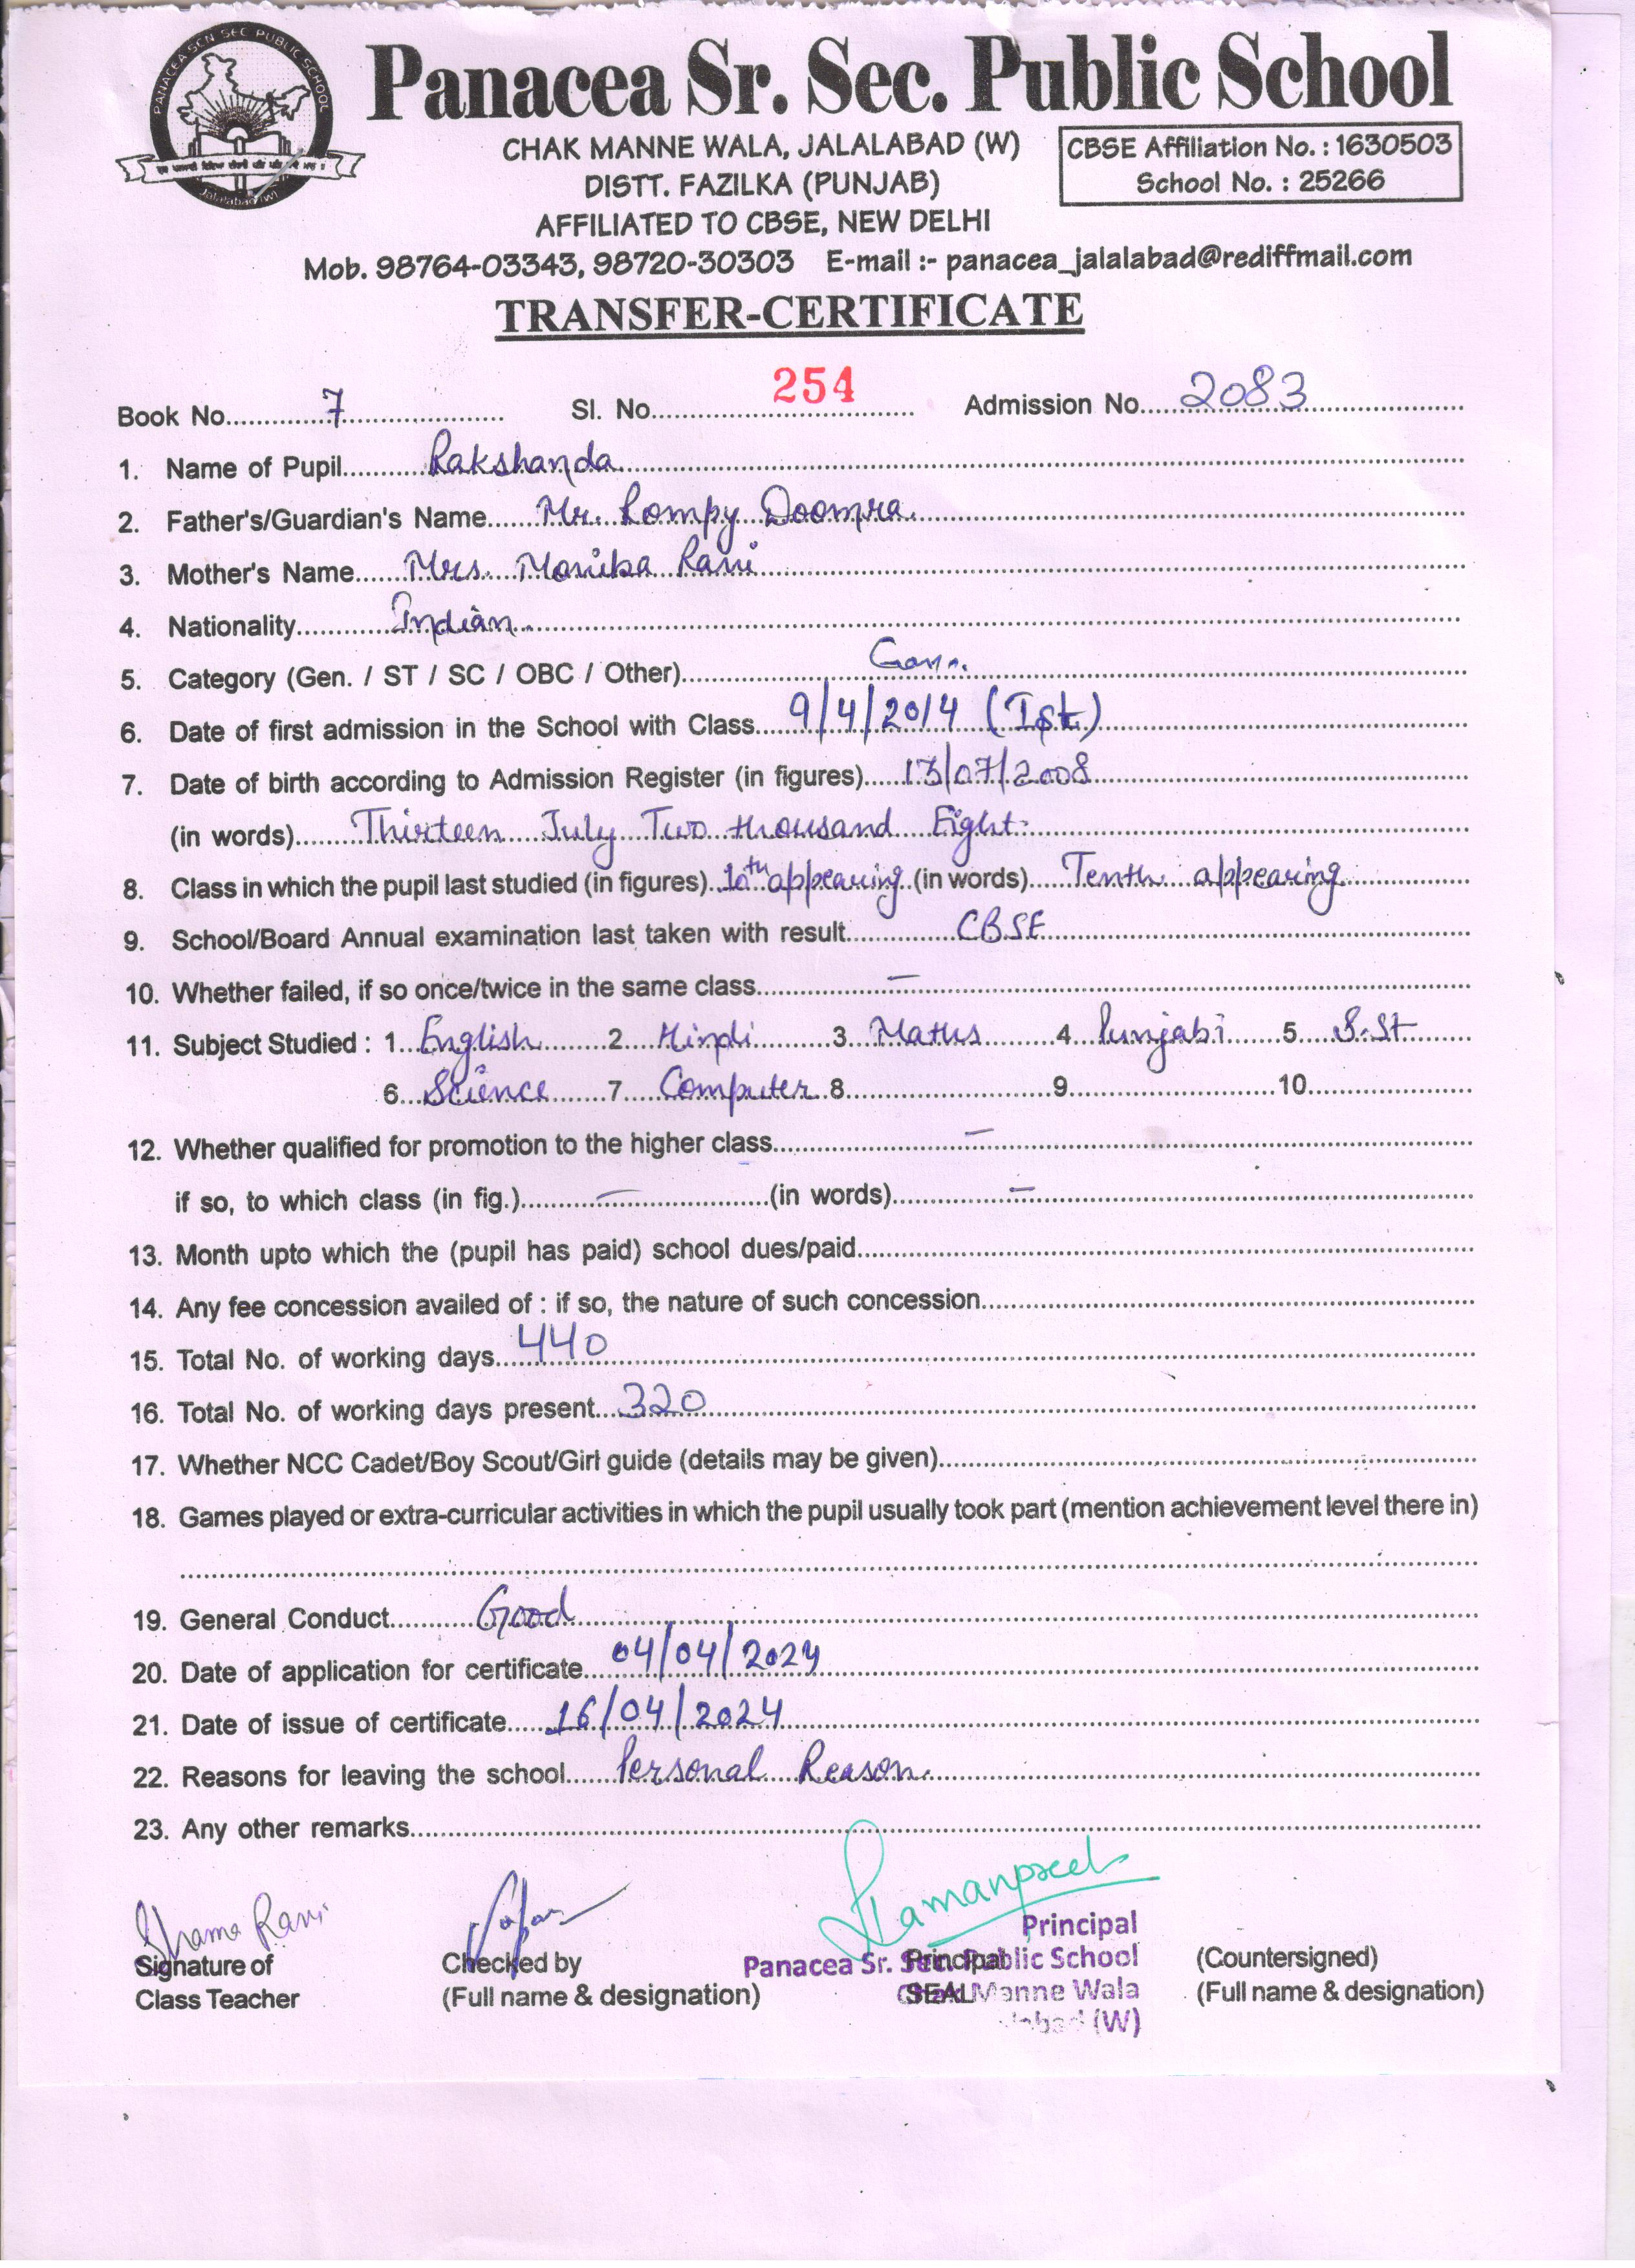 PANACEA SCN SEC PUBLIC SCHOOL
Jalalabad (W)
Panacea Sr. Sec. Public School
CHAK MANNE WALA, JALALABAD (W)
DISTT. FAZILKA (PUNJAB)
AFFILIATED TO CBSE, NEW DELHI
CBSE Affiliation No. : 1630503
School No. : 25266
Mob. 98764-03343, 98720-30303 E-mail :- panacea_jalalabad@rediffmail.com
TRANSFER-CERTIFICATE
Book No. 7 Sl. No. 254 Admission No. 2083
1. Name of Pupil Rakshanda
2. Father's/Guardian's Name Mr. Rompy Doomra
3. Mother's Name Mrs. Monika Rani
4. Nationality Indian
5. Category (Gen. / ST / SC / OBC / Other)
6. Date of first admission in the School with Class 9/4/2014 (Ist)
7. Date of birth according to Admission Register (in figures) 13/07/2008
(in words) Thirteen July Two thousand Eight
8. Class in which the pupil last studied (in figures) 10th appearing (in words) Tenth appearing
9. School/Board Annual examination last taken with result CBSE
10. Whether failed, if so once/twice in the same class —
11. Subject Studied : 1 English 2 Hindi 3 Maths 4 Punjabi 5 S.St
6 Science 7 Computer 8 9 10
12. Whether qualified for promotion to the higher class —
if so, to which class (in fig.) — (in words) —
13. Month upto which the (pupil has paid) school dues/paid
14. Any fee concession availed of : if so, the nature of such concession
15. Total No. of working days 440
16. Total No. of working days present 320
17. Whether NCC Cadet/Boy Scout/Girl guide (details may be given)
18. Games played or extra-curricular activities in which the pupil usually took part (mention achievement level there in)
19. General Conduct Good
20. Date of application for certificate 04/04/2024
21. Date of issue of certificate 16/04/2024
22. Reasons for leaving the school Personal Reason
23. Any other remarks
Shama Rani
Signature of
Class Teacher
Checked by
(Full name & designation)
Ramanpreet
Principal
Panacea Sr. Sec. Public School
Manne Wala
(W)
Principal
SEAL
(Countersigned)
(Full name & designation)